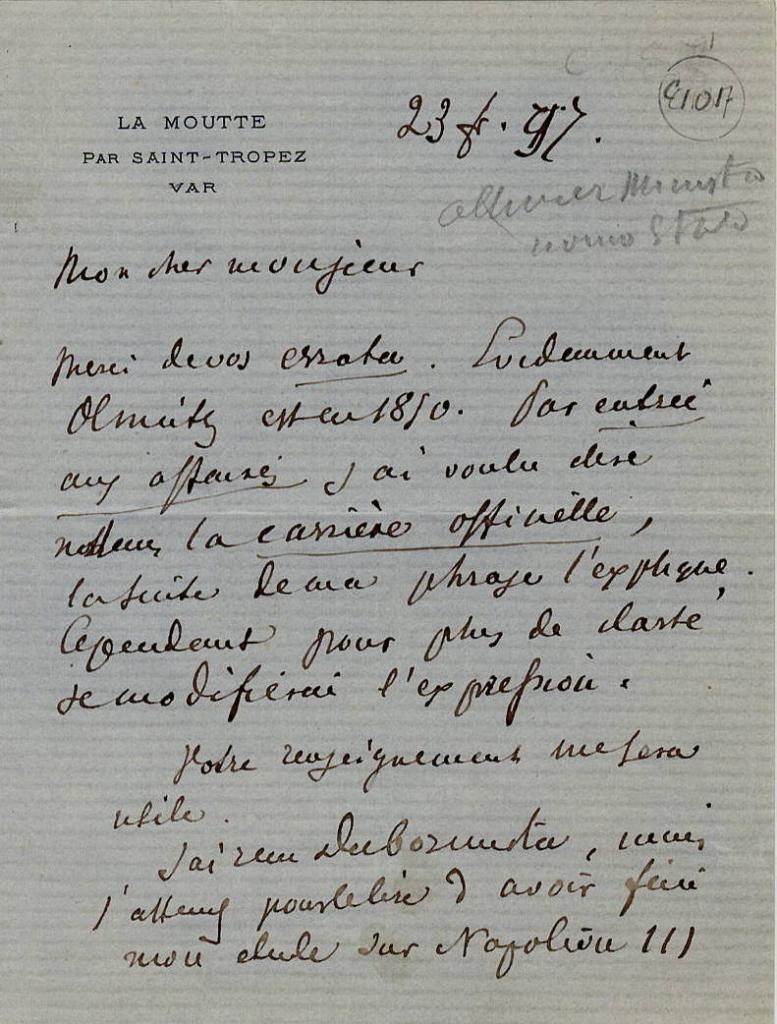 E1017
LA MOUTTE
PAR SAINT-TROPEZ
VAR
23 fr. 97.
Ollivier Ministro
uomo Stato
Mon cher monsieur
Merci de vos errata. Evidemment
Olmütz est en 1850. Par entrée
aux affaires j'ai voulu dire
la carrière officielle,
la suite de ma phrase l'explique.
Cependant pour plus de clarté
je modifierai l'expression.
Votre renseignement me sera
utile.
J'ai reçu, mais
j'attens pour le lire d'avoir fini
mon etude sur Napoléon III